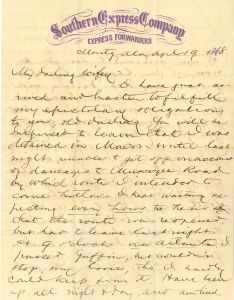 Southern Express Company
EXPRESS FORWARDERS
Montg Ala, Apl 9 1865
My darling Wifey
I have just ar-
rived and hasten to fulfill
my epistolary obligations
to you, old darling. You will be
surprised to learn that I was
detained in Macon until last
night unable to get off on account
of damages to Muscogee Road
by which route I intended to
come hither. I kept waiting ex-
pecting every hour to hear
that the route was reopened
but had to leave last night
at 9 o'clock via Atlanta I
passed Griffin, but couldn't
stop, my love, tho I hardly
could keep from it. Have been
up all night & day, and am tired,